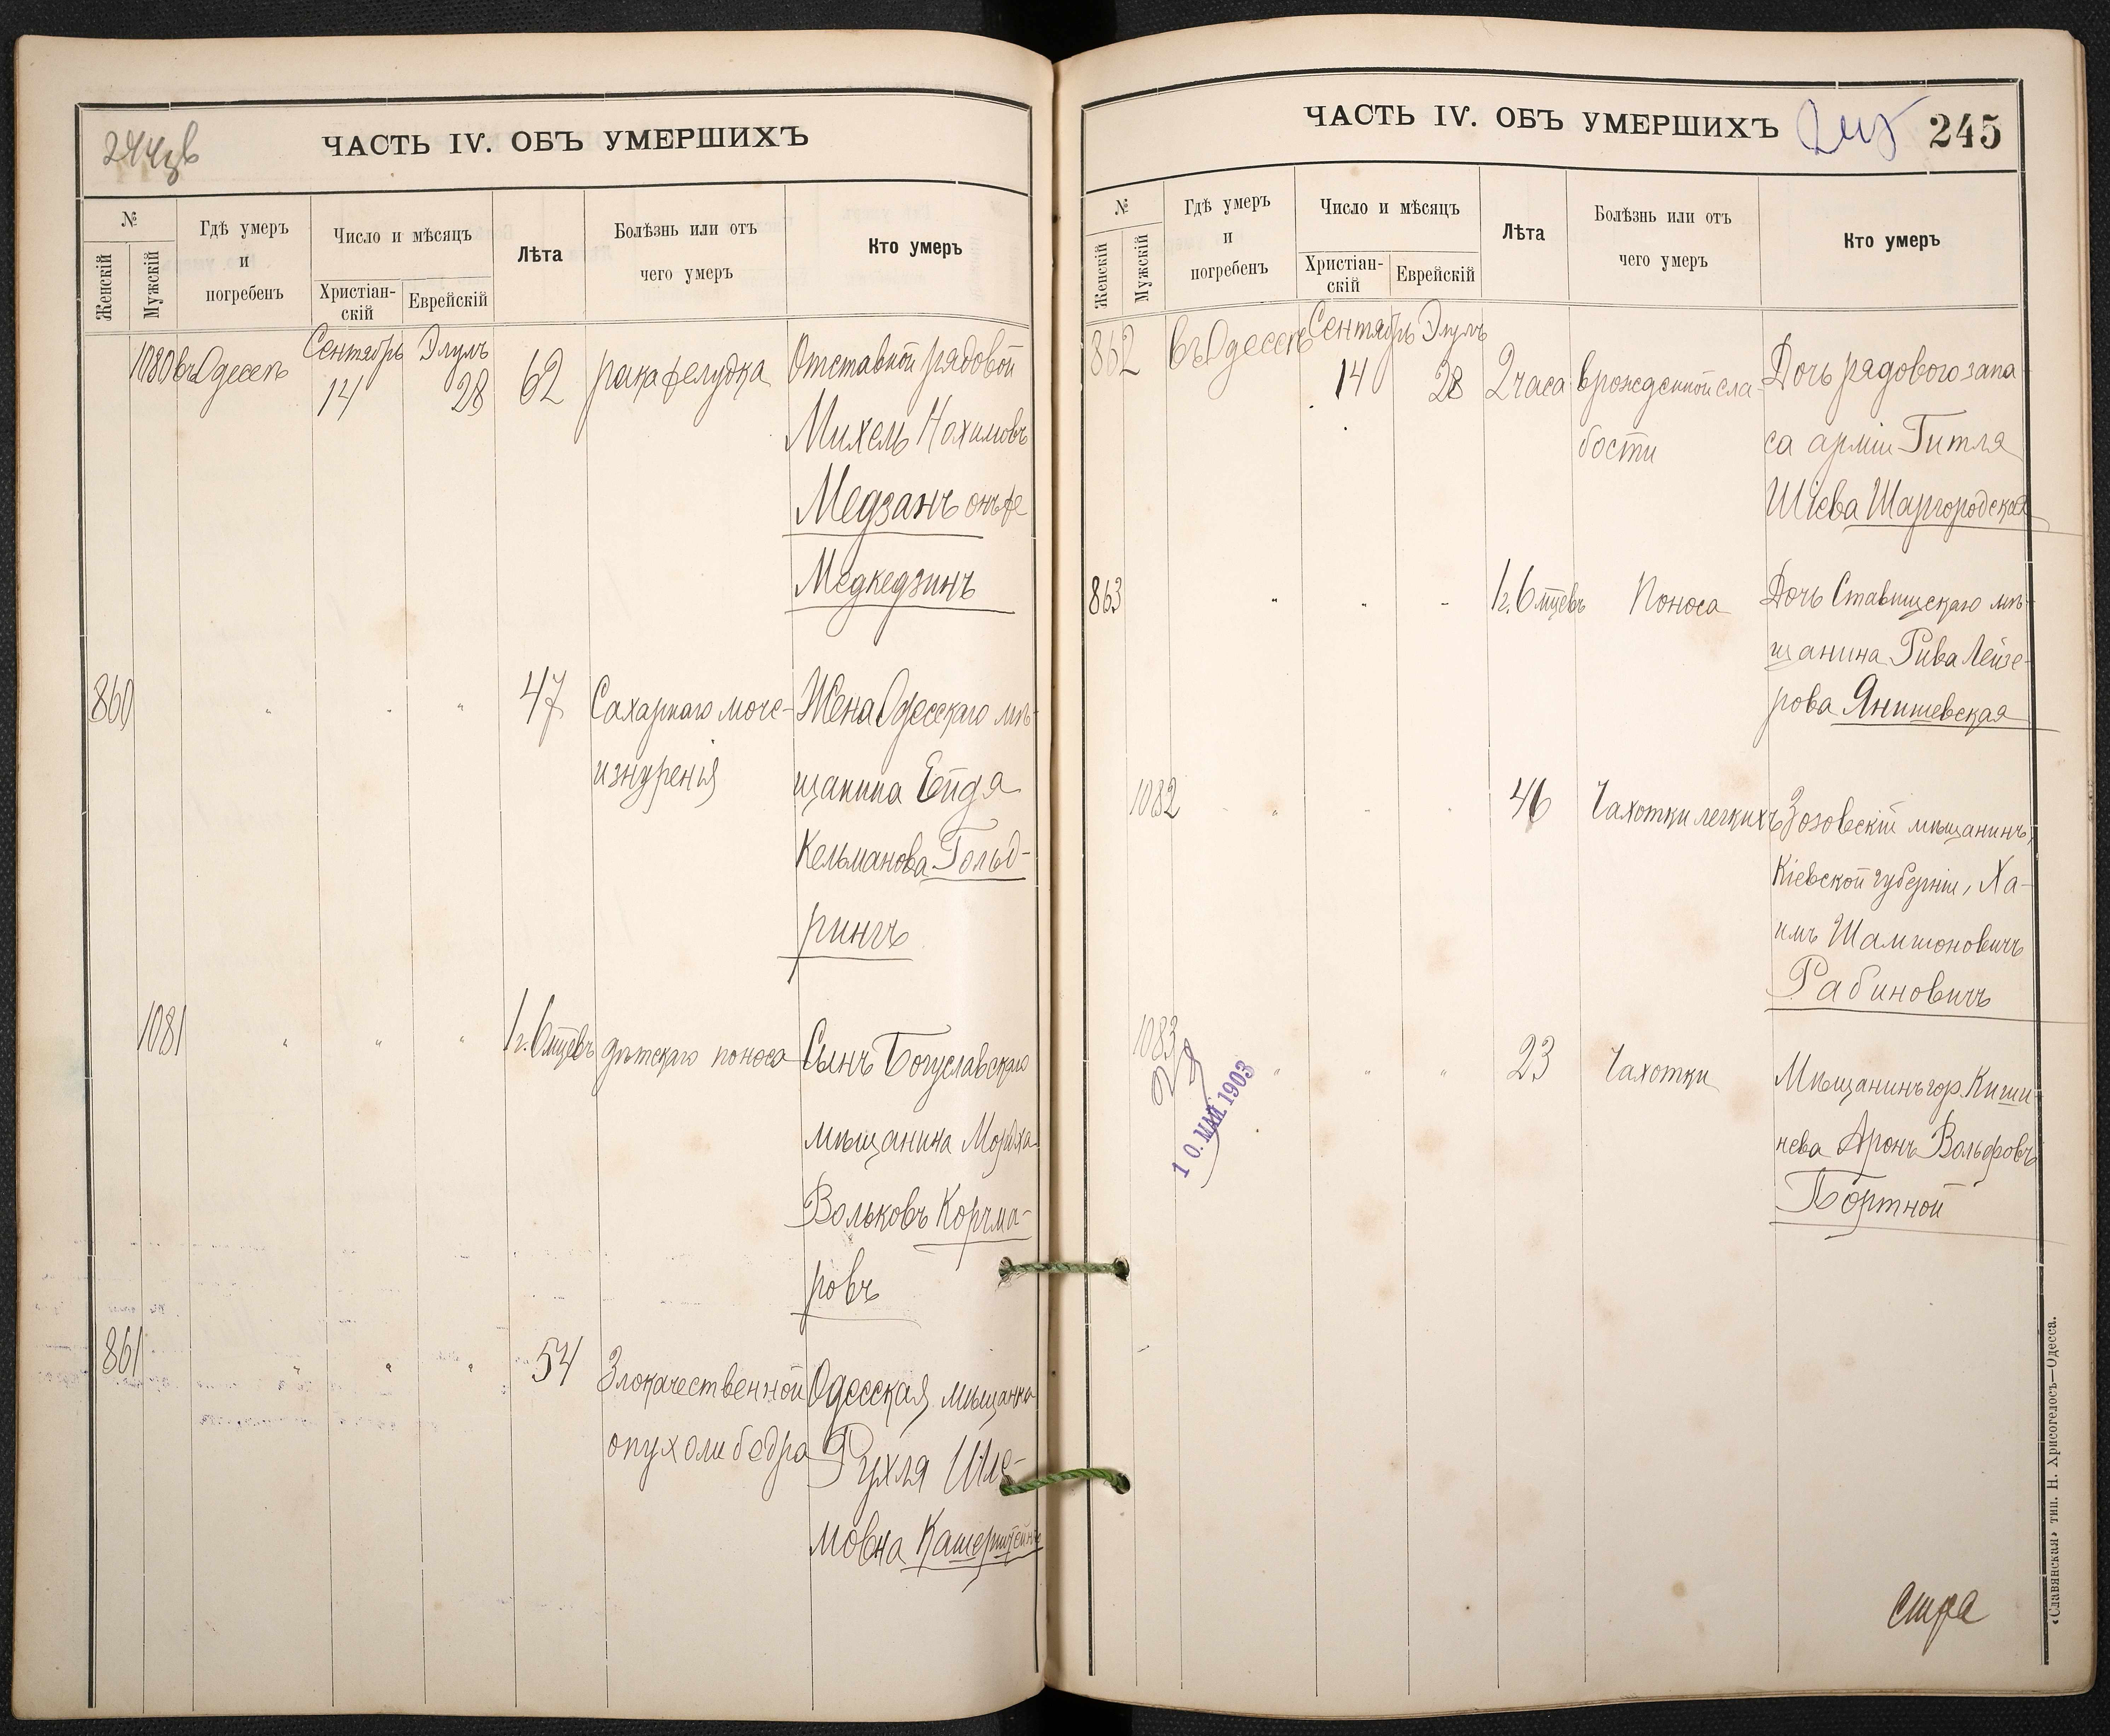 244 зв
ЧАСТЬ IV. ОБЪ УМЕРШИХЪ
№
Женскій
Мужскій
Гдѣ умеръ
и
погребенъ
Число и мѣсяцъ
Христіан-
скій
Еврейскій
Лѣта
Болѣзнь или отъ
чего умеръ
Кто умеръ
1080 въ Одессѣ Сентябрь 14 Элулъ 28 62 рака желудка Отставной рядовой
Михель Нохимовъ
Медзанъ онъ же
Медкедзинъ
860 " " " 47 Сахарнаго моче- Жена Одесскаго мѣ-
изнуренія щанина Ейдя
Кельманова Гольд-
рингъ
1081 " " " 1 г. 6 мцевъ дѣтскаго поноса Сынъ Богуславскаго
мѣщанина Мордха
Вольковъ Корчма-
ровъ
861 " " " 54 Злокачественной Одесская мѣщанка
опухоли бедра Рухля Шле-
мовна Кашерштейнъ
ЧАСТЬ IV. ОБЪ УМЕРШИХЪ 245
№
Женскій
Мужскій
Гдѣ умеръ
и
погребенъ
Число и мѣсяцъ
Христіан-
скій
Еврейскій
Лѣта
Болѣзнь или отъ
чего умеръ
Кто умеръ
862 въ Одессѣ Сентябрь 14 Элулъ 28 2 часа врожденной сла- Дочь рядового запа-
бости са арміи Гитля
Шіева Шаргородская
863 " " " 1 г. 6 мцевъ Поноса Дочь Ставищскаго мѣ-
щанина Рива Лейзе-
рова Янишевская
1082 " " " 46 Чахотки легкихъ Зозовскій мѣщанинъ,
Кіевской губерніи, Ха-
имъ Шамшоновичъ
Рабиновичъ
1083 " " " 23 Чахотки Мѣщанинъ гор. Киши-
нева Аронъ Вольфовъ
Портной
10. МАЙ 1903
«Славянская» тип. Н. Хрисогелосъ—Одесса.